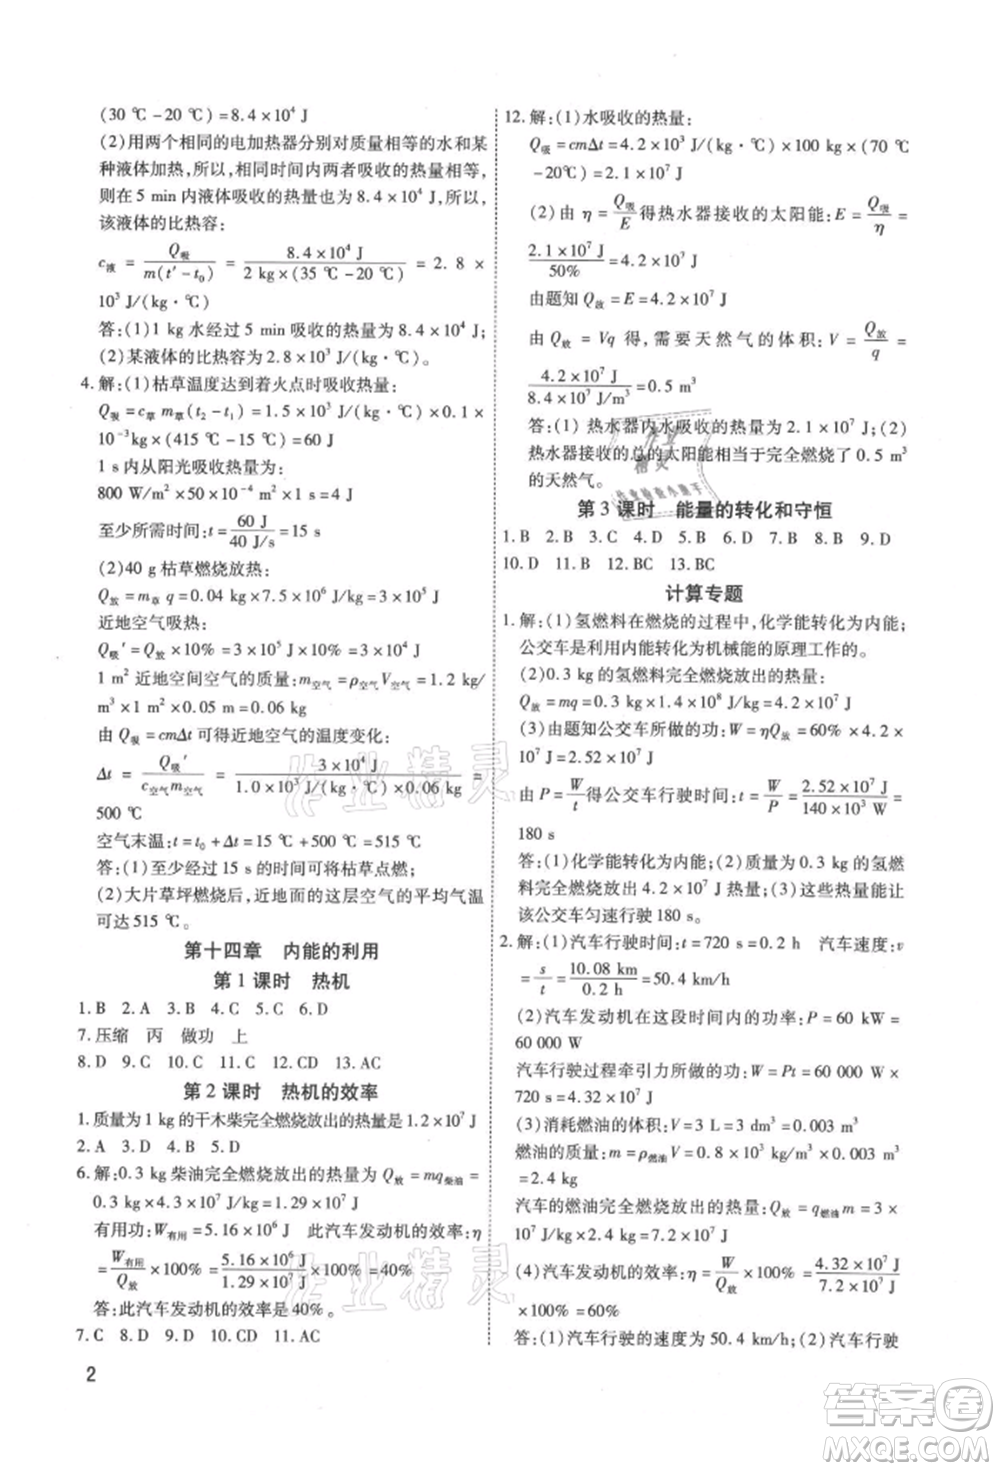 (30 ℃-20 ℃)=8.4×10⁴ J
(2)用两个相同的电加热器分别对质量相等的水和某
种液体加热,所以,相同时间内两者吸收的热量相等,
则在 5 min 内液体吸收的热量也为 8.4×10⁴ J,所以,
该液体的比热容:
c液 = Q吸/m(t′-t₀) = 8.4×10⁴ J/2 kg×(35 ℃-20 ℃) = 2.8×
10³ J/(kg·℃)
答:(1)1 kg 水经过 5 min 吸收的热量为 8.4×10⁴ J;
(2)某液体的比热容为 2.8×10³ J/(kg·℃)。
4. 解:(1)枯草温度达到着火点时吸收热量:
Q吸=c草 m草(t₂-t₁)=1.5×10³ J/(kg·℃)×0.1×
10⁻³kg×(415 ℃-15 ℃)=60 J
1 s内从阳光吸收热量为:
800 W/m²×50×10⁻⁴ m²×10=40 J
至少所需时间:t=60 J/40 J/s=15 s
(2)40 g枯草燃烧放热:
Q放=m草 q=0.04 kg×7.5×10⁶ J/kg=3×10⁵ J
近地空气吸热:
Q吸′=Q放×10%=3×10⁵ J×10%=3×10⁴ J
1 m² 近地空间空气的质量:m空气=ρ空气V空气=1.2 kg/
m³×1 m²×0.05 m=0.06 kg
由 Q吸=cmΔt 可得近地空气的温度变化:
Δt=Q吸′/c空气m空气=3×10⁴ J/1.0×10³ J/(kg·℃)×0.06 kg=
500 ℃
空气末温:t=t₀+Δt=15 ℃+500 ℃=515 ℃
答:(1)至少经过 15 s 的时间可将枯草点燃;
(2)大片草坪燃烧后,近地面的这层空气的平均气温
可达 515 ℃。
第十四章 内能的利用
第 1 课时 热机
1. B 2. A 3. B 4. C 5. C 6. D
7. 压缩 丙 做功 上
8. D 9. C 10. C 11. C 12. CD 13. AC
第 2 课时 热机的效率
1. 质量为 1 kg 的干木柴完全燃烧放出的热量是1.2×10⁷ J
2. A 3. D 4. B 5. D
6. 解:0.3 kg 柴油完全燃烧放出的热量为 Q放=mq柴油=
0.3 kg×4.3×10⁷ J/kg=1.29×10⁷ J
有用功:W有用=5.16×10⁶ J 此汽车发动机的效率:η
=W有用/Q放×100%=5.16×10⁶ J/1.29×10⁷ J×100%=40%
答:此汽车发动机的效率是 40%。
7. C 8. D 9. D 10. B 11. AC
2
12. 解:(1)水吸收的热量:
Q吸=cmΔt=4.2×10³ J/(kg·℃)×100 kg×(70 ℃
-20℃)=2.1×10⁷ J
(2)由 η=Q吸/E得热水器接收的太阳能:E=Q吸/η=
2.1×10⁷ J/50%=4.2×10⁷ J
由题知 Q放=E=4.2×10⁷ J
由 Q放=Vq 得,需要天然气的体积:V=Q放/q=
4.2×10⁷ J/8.4×10⁷ J/m³=0.5 m³
答:(1)热水器内水吸收的热量为 2.1×10⁷ J;(2)
热水器接收的总的太阳能相当于完全燃烧了 0.5 m³
的天然气。
第 3 课时 能量的转化和守恒
1. B 2. B 3. C 4. C 5. D 6. D 7. B 8. D 9. D
10. D 11. B 12. BC 13. BC
计算专题
1. 解:(1)氢燃料在燃烧的过程中,化学能转化为内能;
公交车是利用内能转化为机械能的原理工作的。
(2)0.3 kg的氢燃料完全燃烧放出的热量:
Q放=mq=0.3 kg×1.4×10⁸ J/kg=4.2×10⁷ J
(3)由题知公交车所做的功:W=ηQ放=60%×4.2×
10⁷ J=2.52×10⁷ J
由 P=W/t得公交车行驶时间:t=W/P=2.52×10⁷ J/140×10³ W=
180 s
答:(1)化学能转化为内能;(2)质量为 0.3 kg 的氢燃
料完全燃烧放出 4.2×10⁷ J 热量;(3)这些热量能让
该公交车匀速行驶 180 s。
2. 解:(1)汽车行驶时间:t=720 s=0.2 h 汽车速度:v
=s/t=10.08 km/0.2 h=50.4 km/h
(2)汽车发动机在这段时间内的功率:P=60 kW=
60 000 W
汽车行驶过程牵引力所做的功:W=Pt=60 000 W×
720 s=4.32×10⁷ J
(3)消耗燃油的体积:V=3 L=3 dm³=0.003 m³
燃油的质量:m=ρ燃油V=0.8×10³ kg/m³×0.003 m³
=2.4 kg
汽车的燃油完全燃烧放出的热量:Q放=q燃油m=3×
10⁷ J/kg×2.4 kg=7.2×10⁷ J
(4)汽车发动机的效率:η=W/Q放×100%=4.32×10⁷ J/7.2×10⁷ J
×100%=60%
答:(1)汽车行驶的速度为 50.4 km/h;(2)汽车行驶
作业精灵
作业精灵
作业精灵
答案圈
MXQE.COM